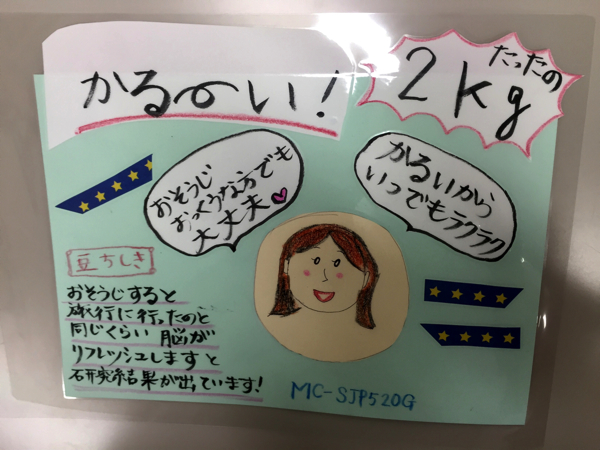 かる〜い!
たったの
2kg
おそうじ
おっくうな方でも
大丈夫
かるいから
いつでもラクラク
豆ちしき
おそうじすると
旅行に行ったのと
同じくらい 脳が
リフレッシュしますと
研究結果が出ています!
MC-SJP520G